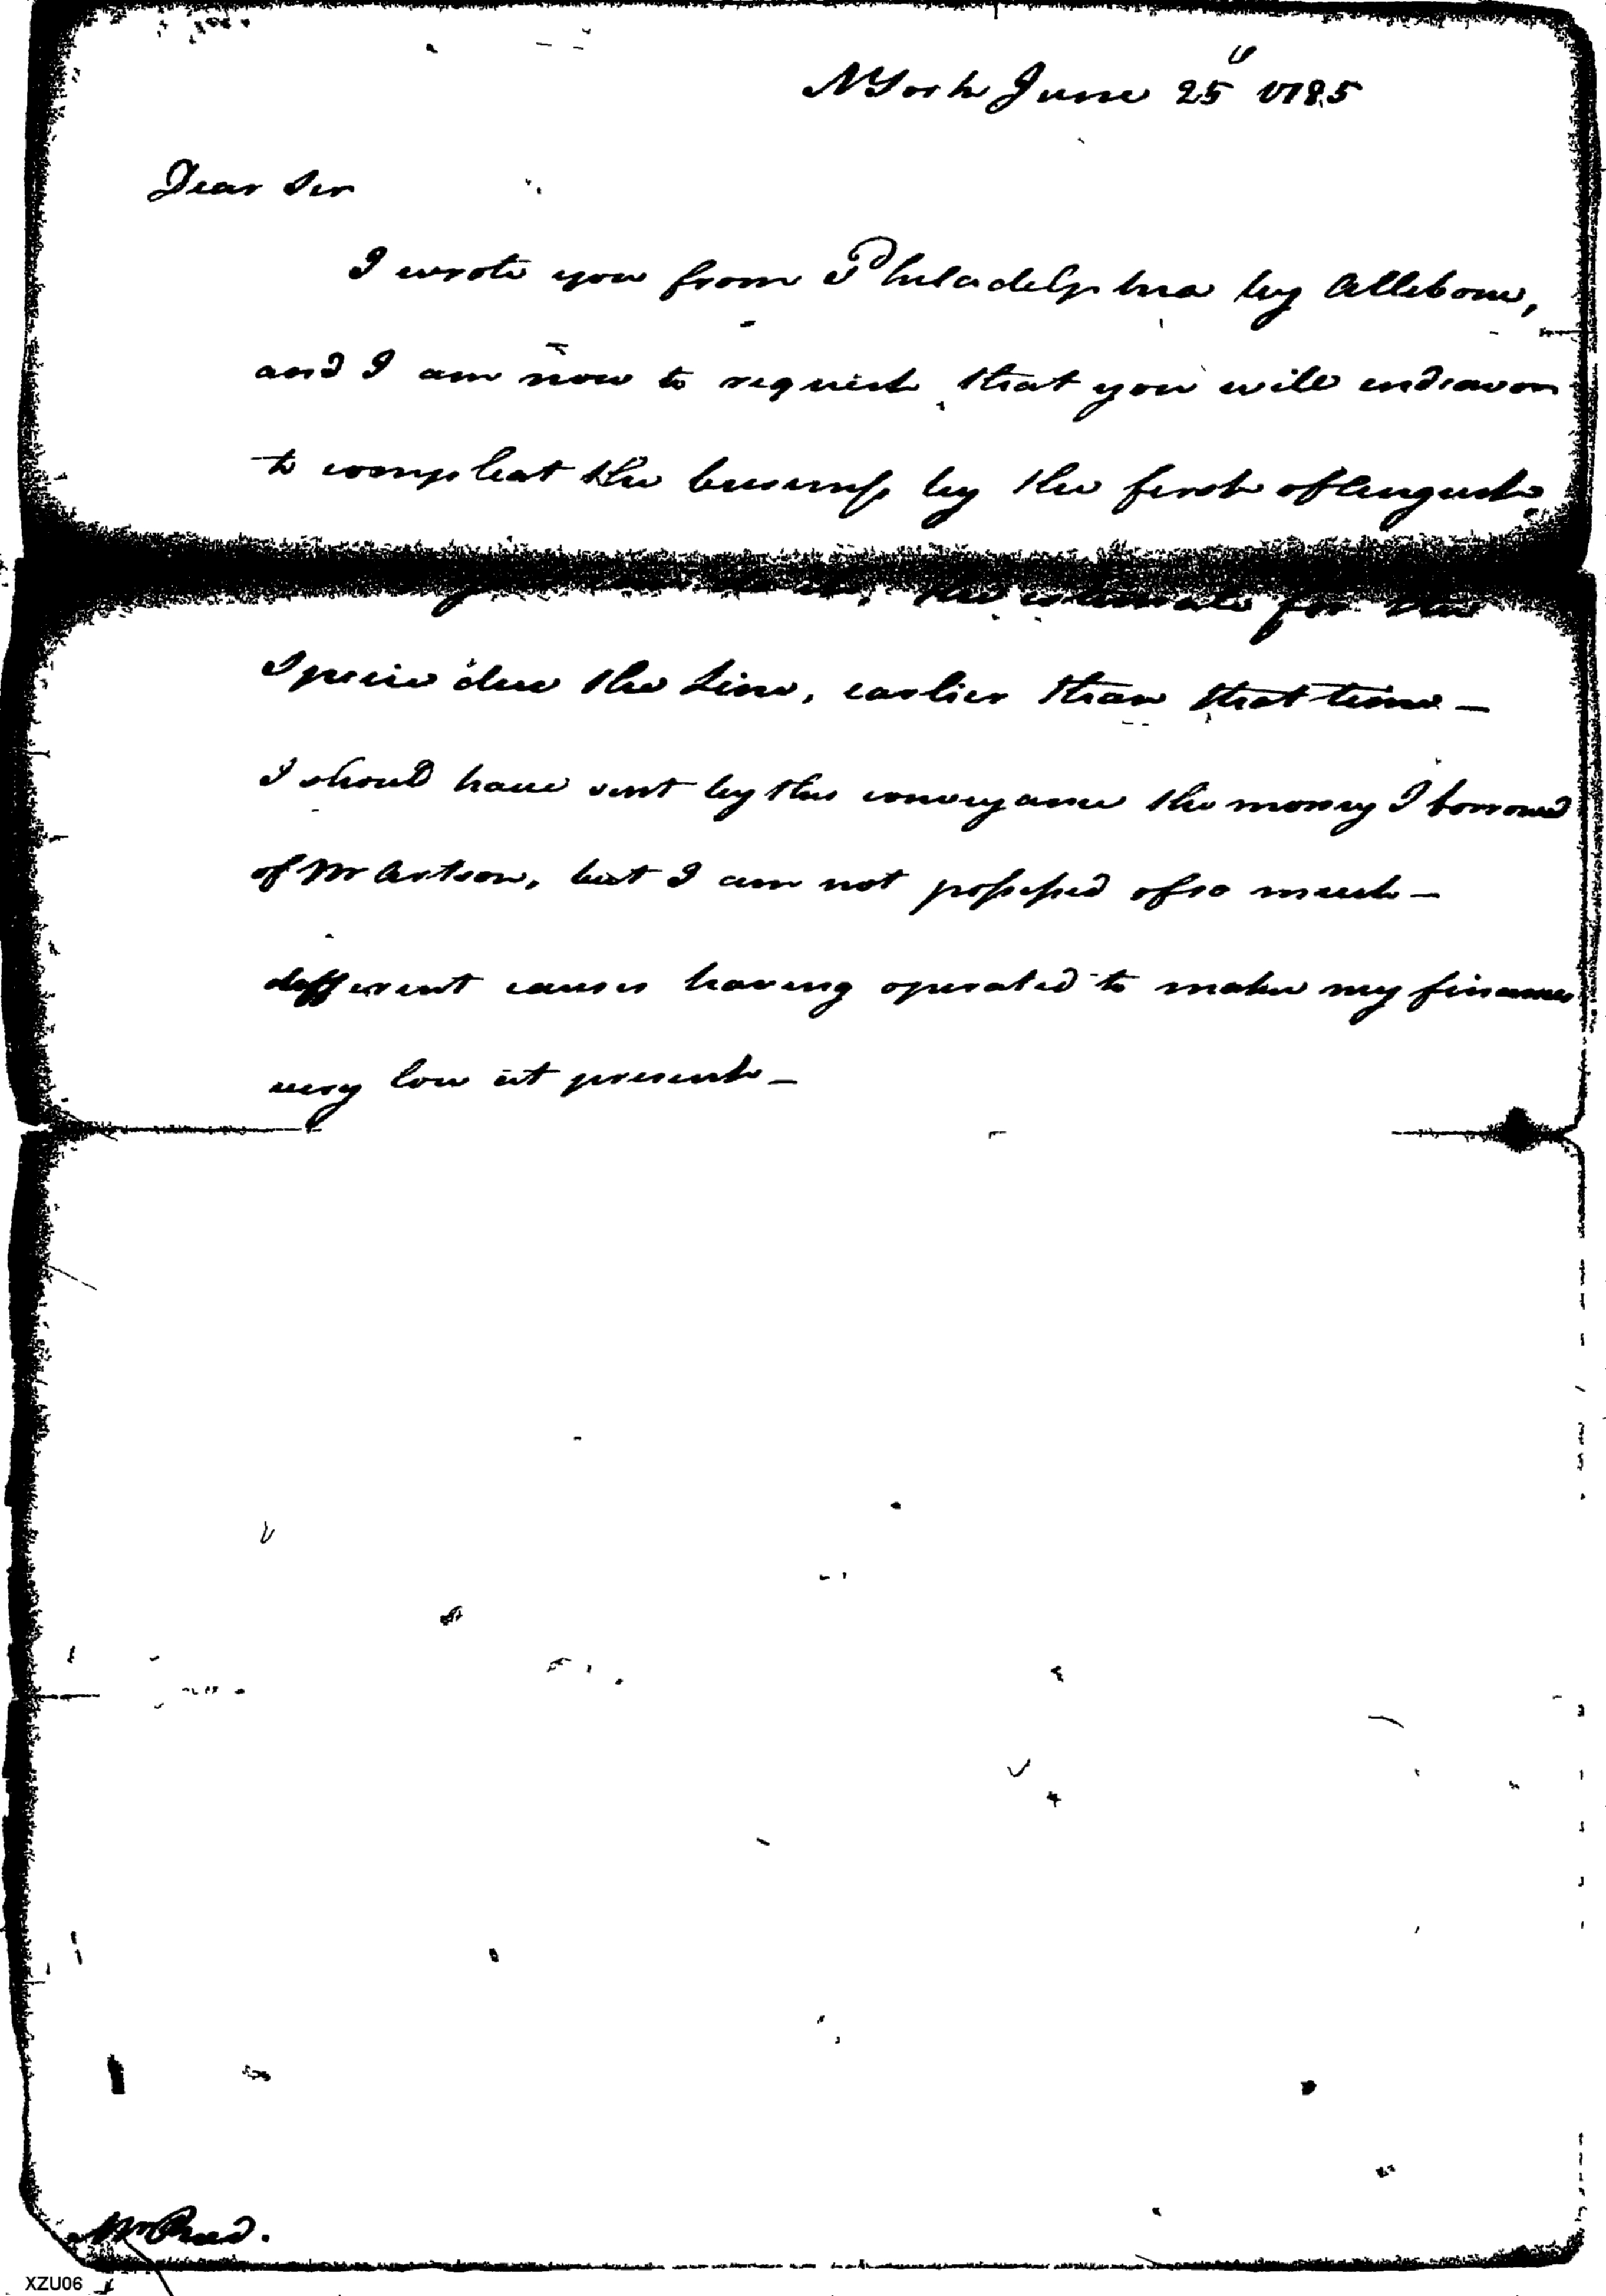 NYork June 25th 1785
Dear Sir
I wrote you from Philadelphia by Allebone,
and I am now to request that you will endeavor
to compleat the business by the first of August.
the estimate for the
Specie due the Line, earlier than that time —
I should have sent by this conveyance the money I borrowed
of Mr Artson, but I am not possessed of so much —
different causes having operated to make my finances
very low at present —
Mr Reed.
XZU06